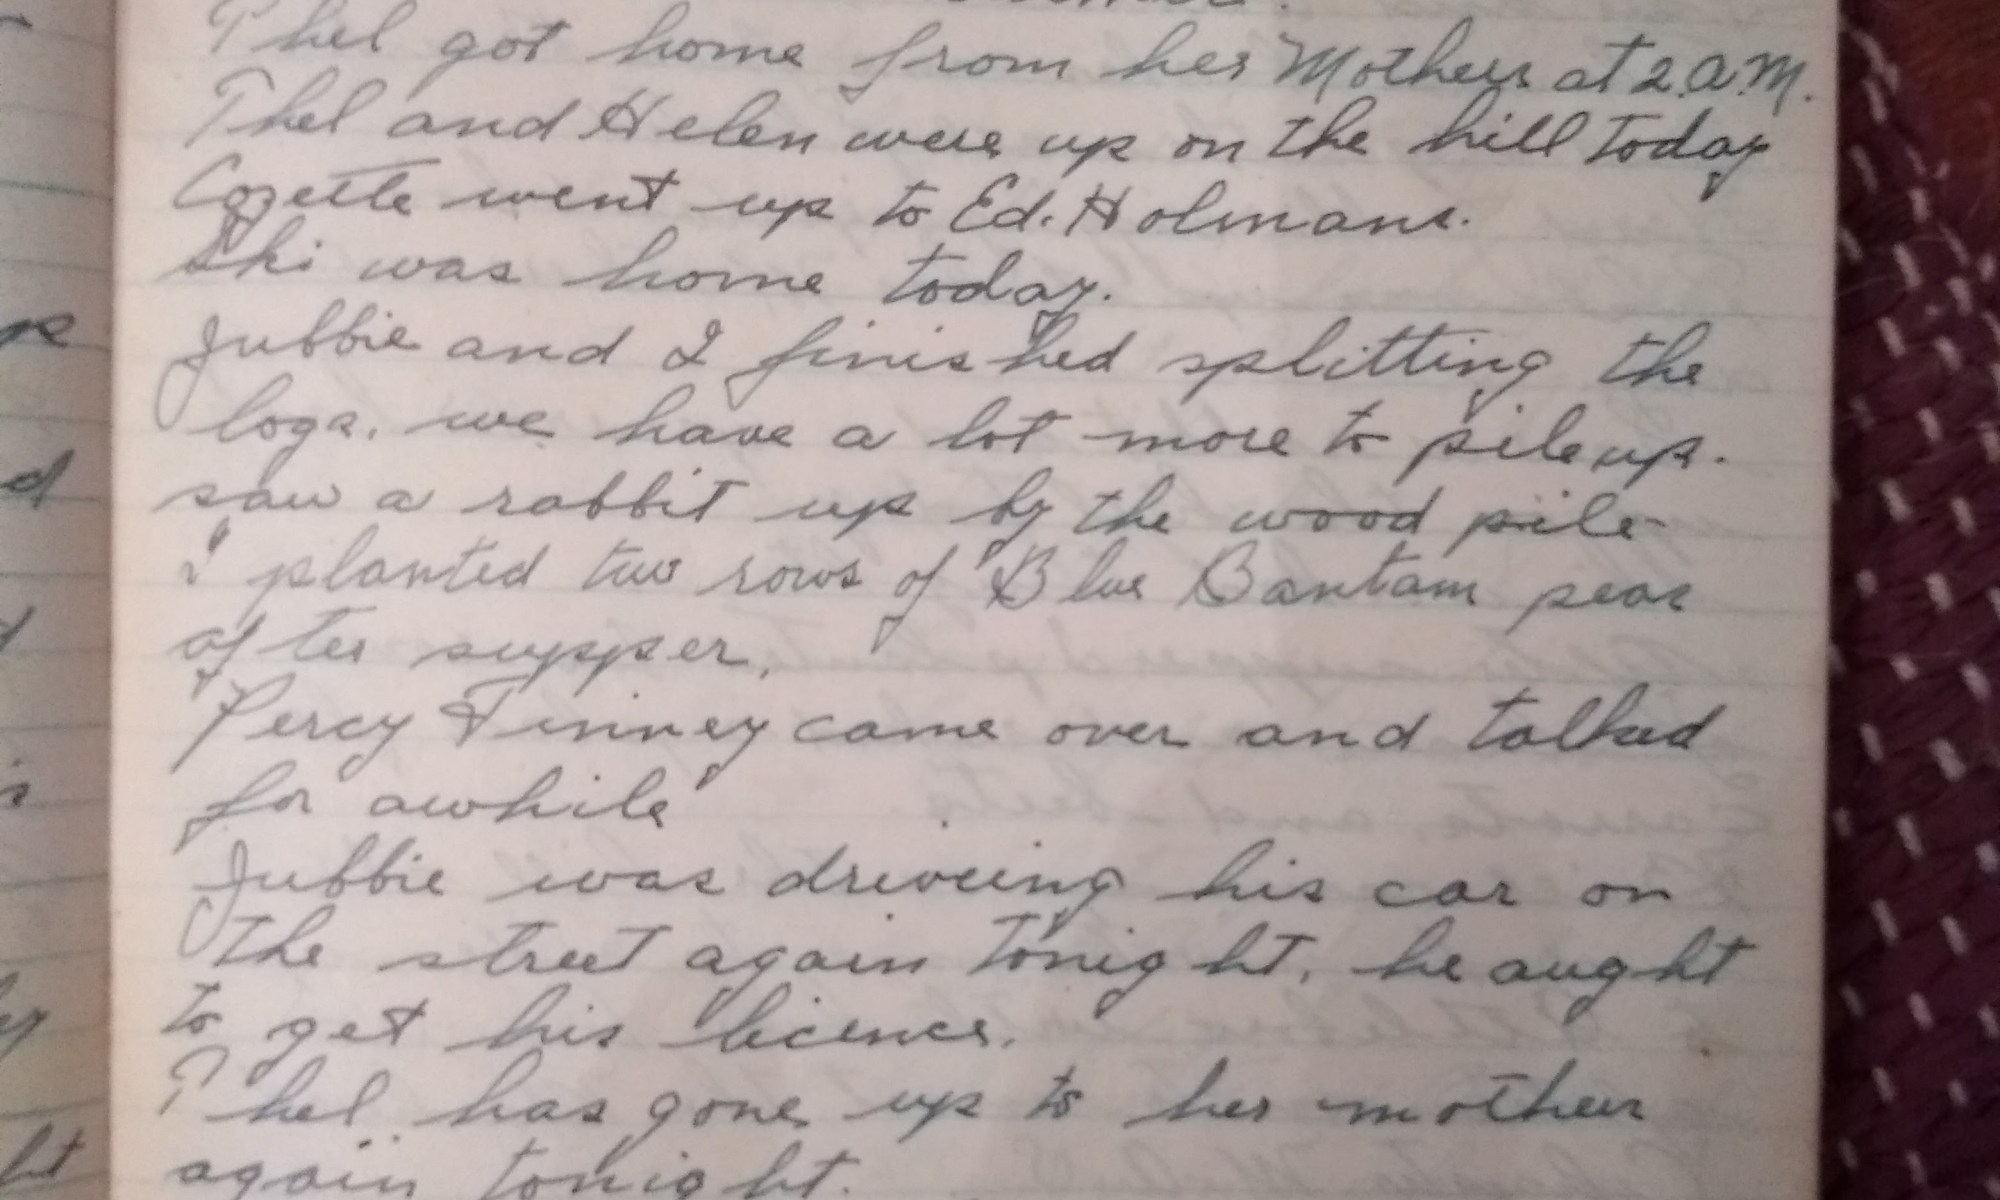 Thel got home from her Mothers at 2.a.M.
Thel and Helen were up on the hill today
Cozette went up to Ed. Holmans.
Ski was home today.
Jubbie and I finished splitting the
logs. we have a lot more to pile up.
saw a rabbit up by the wood pile
I planted two rows of Blue Bantam peas
after supper,
Percy Finney came over and talked
for awhile
Jubbie was driveing his car on
the street again tonight, he aught
to get his licence.
Thel has gone up to her mothers
again tonight.